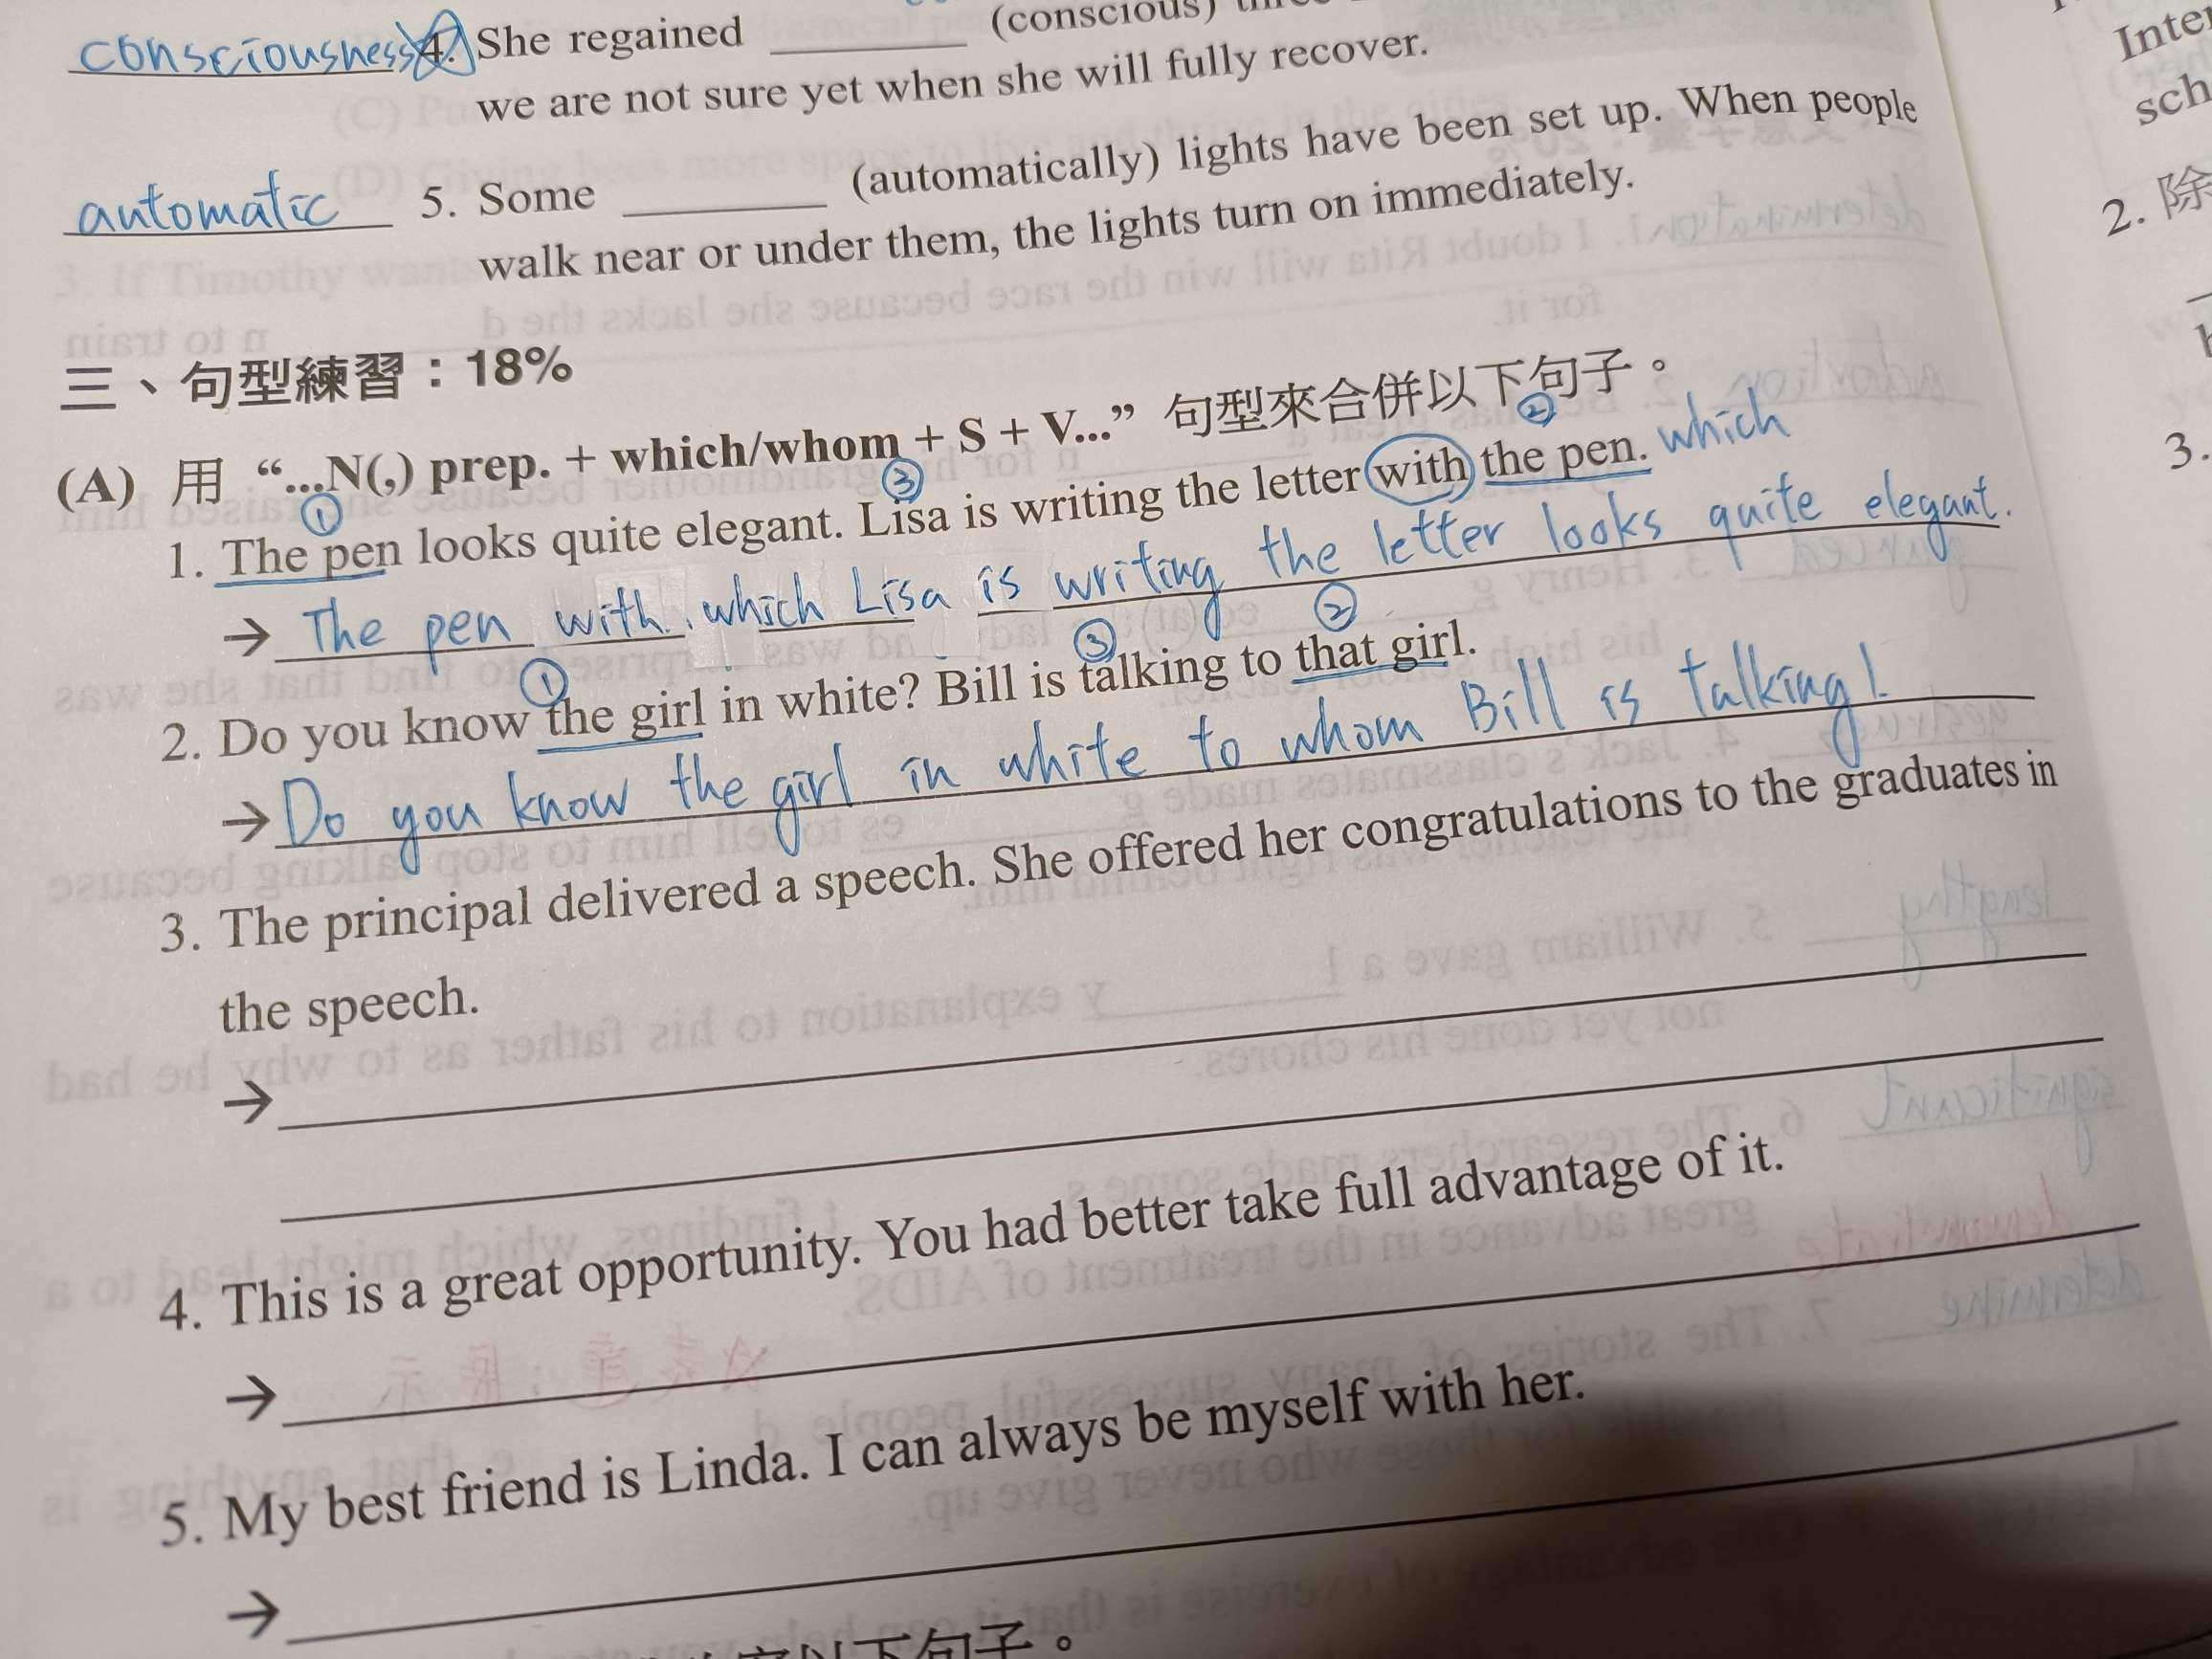 consciousness 4. She regained ________ (conscious)
we are not sure yet when she will fully recover.
automatic 5. Some ________ (automatically) lights have been set up. When people
walk near or under them, the lights turn on immediately.
三、句型練習：18%
(A) 用 “...N(,) prep. + which/whom + S + V...” 句型來合併以下句子。
① ③ ② which
1. The pen looks quite elegant. Lisa is writing the letter with the pen.
→ The pen with which Lisa is writing the letter looks quite elegant.
① ③ ②
2. Do you know the girl in white? Bill is talking to that girl.
→ Do you know the girl in white to whom Bill is talking?
3. The principal delivered a speech. She offered her congratulations to the graduates in
the speech.
→
4. This is a great opportunity. You had better take full advantage of it.
→
5. My best friend is Linda. I can always be myself with her.
→
以下句子。
Inte
sch
2. 除
3.